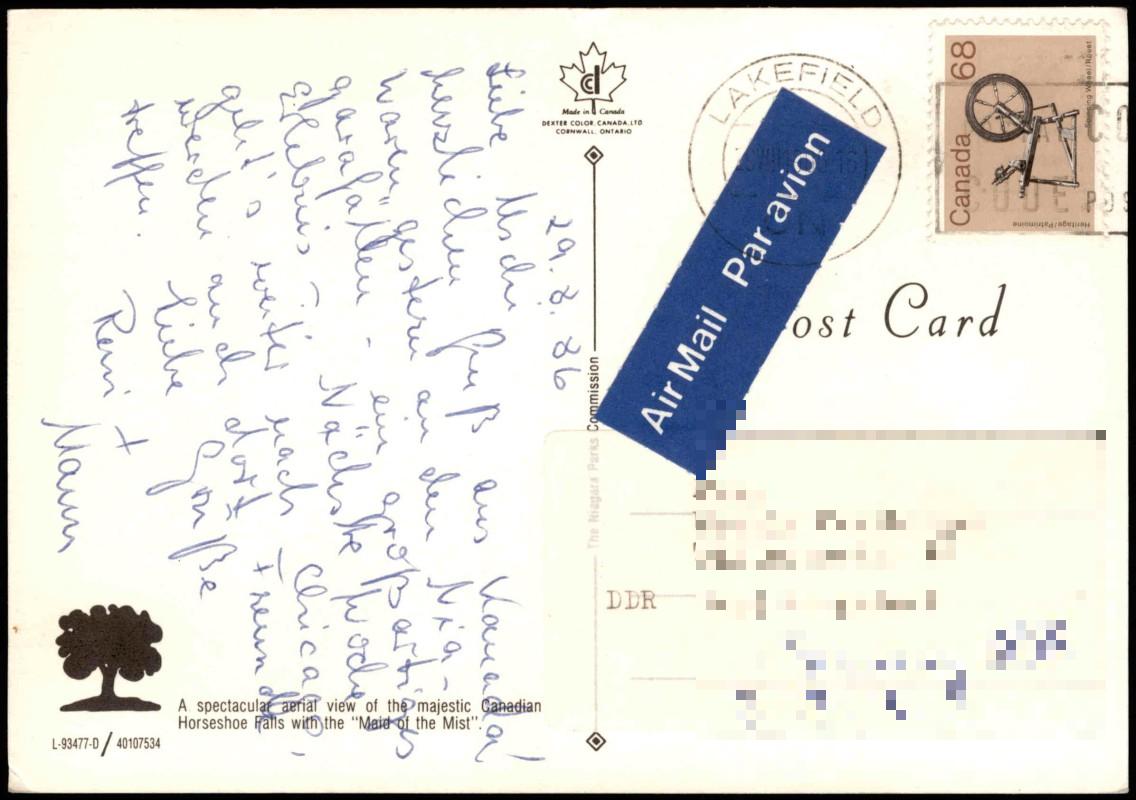 29.8.86
Liebe Uschi
herzlichen Gruß aus Kanada!
waren gestern an den Nia-
garafällen - ein großartiges
Erlebnis. Nächste Woche
geht's weiter nach Chicago,
werden auch dort Freunde
treffen.
Liebe Grüße
Reni +
Made in Canada
DEXTER COLOR CANADA, LTD.
CORNWALL, ONTARIO
The Niagara Parks Commission
A spectacular aerial view of the majestic Canadian
Horseshoe Falls with the "Maid of the Mist".
L-93477-D / 40107534
LAKEFIELD
Air Mail Par avion
Canada 68
Spinning Wheel/Rouet
Heritage/Patrimoine
ost Card
DDR